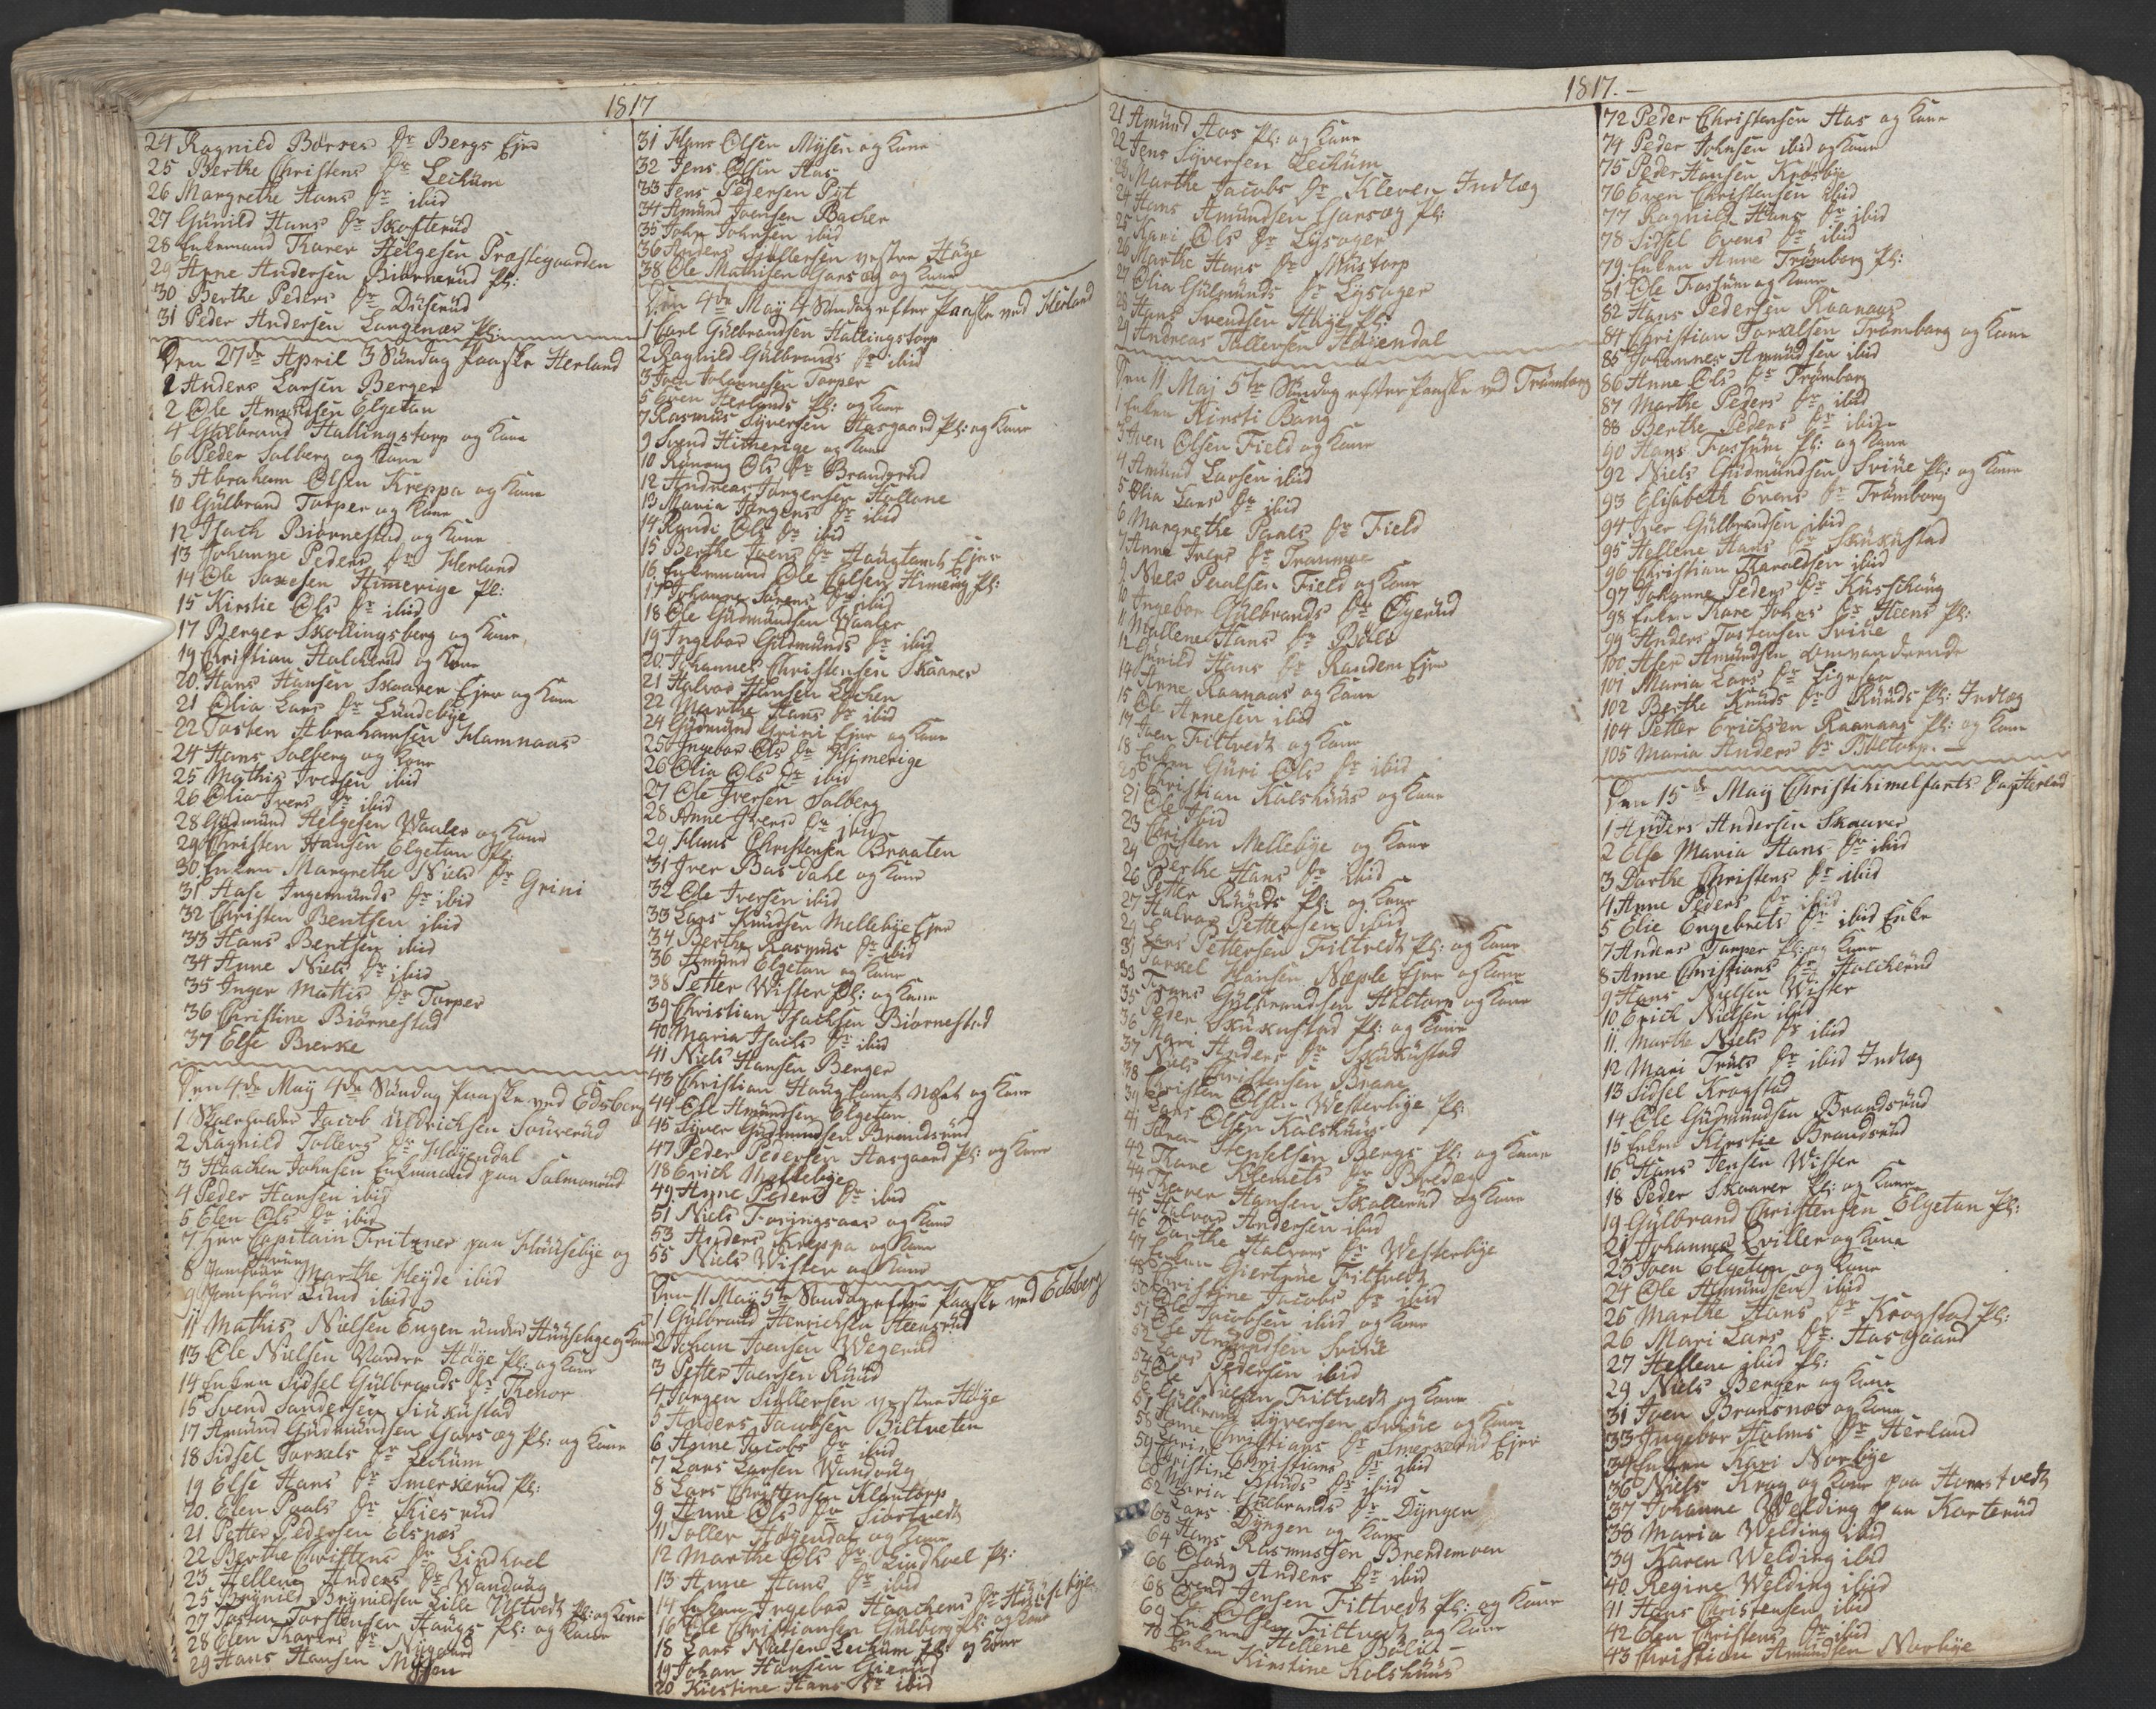 1817
24 Ragnild Børres Dr Bergs Ejer
25 Berthe Christens Dr Lechum
26 Margrethe Hans Dr ibid
27 Gunild Hans Dr Skofterud
28 Enkemand Karer Helgesen Præstegaarden
29 Anne Andersen Biørnerud Pl:
30 Berthe Peders Dr Duserud
31 Peder Andersen Langenæs Pl:
Den 27de April 3 Søndag Paaske Herland
1 Anders Larsen Berger
2 Ole Amundsen Elgetun
4 Gulbrand Hallingstorp og Kone
6 Peder Salberg og Kone
8 Abraham Olsen Kreppa og Kone
10 Gulbrand Torper og Kone
12 Isach Biørnestad og Kone
13 Johanne Peders Dr Herland
14 Ole Saxesen Himerige Pl:
15 Kirstie Ols Dr ibid
17 Berger Skollingsberg og Kone
19 Christian Halcherud og Kone
20. Hans Hansen Skaarer Ejer og Kone
21 Olia Lars Dr Lundebye
22 Tosten Abrahamsen Hamnaas
24 Hans Salberg og Kone
25 Mathis Iversen ibid
26 Olia Ivers Dr ibid
28 Gudmund Helgesen Waaler og Kone
29 Christen Hansen Elgetun Pl:
30. Enken Margrethe Niels Dr Grini
31 Aase Ingemunds Dr ibid
32 Christen Bentsen ibid
33 Hans Bentsen ibid
34 Anne Niels Dr ibid
35 Inger Mattis Dr Torper
36 Christine Biørnestad
37 Else Bierke
Den 4de May 4de Søndag Paaske ved Edsberg
1 Skoleholder Jacob Uldrichsen Souverud
2 Ragnild Tollers Dr Høyendal
3 Haachen Johnsen Enkemand paa Salmonrud
4 Peder Hansen ibid
5 Elen Ols Dr ibid
7 Herr Capitain Fritzner paa Huusebye og Frue
8 Jomfrue Marthe Heyde ibid
9 Jomfrue Lund ibid
11 Mathis Nielsen Engen under Huusebye og Kone
13 Ole Nielsen Nordre Høye Pl: og Kone
14 Enken Sidsel Gulbrands Dr Thenor
15 Svend Sandersen Siukustad
17 Amund Gudmundsen Garseg Pl: og Kone
18 Sidsel Torkels Dr Lechum
19 Else Hans Dr Smerkerud Pl:
20. Elen Paals Dr Kiesrud
21 Petter Pedersen Elsnæs
22 Berthe Christens Dr Lindhoel
23 Hellene Anders Dr Wandung
25 Brynild Brynildsen Lille Ustvedt Pl: og Kone
27 Tosten Torstensen Haugs Pl: og Kone
28 Elen Thorers Dr Nygaard
29 Hans Hansen Mysen
31 Hans Olsen Mysen og Kone
32 Jens Olsen Aas
33 Jens Pedersen Post
34 Amund Joensen Backer
35 John Johnsen ibid
36 Anders Siøllersen vestre Høye
38 Ole Mathisen Garseg og Kone
Den 4de May 4 Søndag efter Paaske ved Herland
1 Carl Gulbrandsen Hallingstorp
2 Ragnild Gulbrands Dr ibid
3 Joen Johannesen Torper
5 Even Herlands Pl: og Kone
7 Rasmus Syversen Aasgaard Pl: og Kone
9 Svend Himerige og Kone
10 Runnug Ols Dr Brandsrud
12 Andreas Jørgensen Hollane
13 Maria Jørgens Dr ibid
14 Randi Ols Dr ibid
15 Berthe Joens Dr Haugtomt Ejer
16. Enkemand Ole Colsen Himerig Pl:
17 Johanne Sørens Dr ibid
18 Ole Gudmundsen Waaler
19 Ingebor Gudmunds Dr ibid
20. Johannes Christensen Skaarer
21 Halvor Hansen Lochen
22 Marthe Hans Dr ibid
24 Gudmund Grini Ejer og Kone
25 Ingebor Ols Dr Himerige
26 Olia Ols Dr ibid
27 Ole Iversen Salberg
28 Anne Ivers Dr ibid
29 Hans Christensen Braaten
31 Iver Bas Dahl og Kone
32 Ole Iversen ibid
33 Lars Knudsen Mellebye Ejer
34 Berthe Rasmus Dr ibid
36 Amund Elgetun og Kone
38 Petter Wister Pl: og Kone
39 Christian Isachsen Biørnestad
40 Maria Isachs Dr ibid
41 Niels Hansen Berger
43 Christian Haugtomt Nohst og Kone
44 Ole Amundsen Elgetun
45 Syver Gudmundsen Brandsrud
47 Peder Pedersen Aasgaard Pl: og Kone
48 Erich Mellebye
49. Anne Peders Dr ibid
51 Niels Foringsaas og Kone
53 Anders Kreppa og Kone
55 Niels Wister og Kone
Den 11 May 5te Søndag efter Paaske ved Edsberg
1 Gulbrand Henrichsen Steensrud
2 Johan Joensen Wegerud
3 Petter Joensen Ruud
4 Jørgen Siøllersen vestre Høye
5 Anders Jacobsen Biltveten
6 Anne Jacobs Dr ibid
7 Lars Larsen Wandung
8 Lars Christensen Kløvtorp
9 Anne Ols Dr Siørtvedt
11 Toller Høyendal og Kone
12 Marthe Ols Dr Lindhoel Pl:
13 Anne Hans Dr ibid
14 Enken Ingebor Haachens Dr Huusebye
16 Ole Christiansen Gulberg Pl: og Kone
18 Lars Nielsen Lechum Pl: og Kone
19 Johan Hansen Gierud
20. Kirstine Hans Dr ibid
1817.
21 Amund Aas Pl: og Kone
22 Jens Syversen Lechum
23 Marthe Jacobs Dr Kleven Indlæg
24 Hans Amundsen Garsæg Pl:
25 Kari Ols Dr Lysager
26 Marthe Hans Dr Mustorp
27 Olia Gulmunds Dr Lysager
28 Hans Svendsen Høye Pl:
29 Andreas Tollersen Høyendal
Den 11 Maj 5te Søndag efter Paaske ved Trømborg
1 Enken Kirsti Bang
3 Iven Olsen Field og Kone
4 Amund Larsen ibid
5 Olia Lars Dr ibid
6 Margrethe Paals Dr Field
7 Anne Ivers Dr Traumoe
9 Niels Paalsen Field og Kone
10 Ingebor Gulbrands Dr Øgerud
11 Mallene Hans Dr
12 Gunild Hans Dr Randem Ejer
14 Arne Raanaas og Kone
15 Ole Arnesen ibid
17 Joen Filtvedt og Kone
18 Enken Guri Ols Dr ibid
20 Christian Kalshuus og Kone
21 Ole ibid
23 Christen Mellebye og Kone
24 Berthe Hans Dr ibid
26 Petter Ruuds Pl: og Kone
27 Halvor Pettersen ibid
29 Lars Pettersen Filtvedt Pl: og Kone
31 Torkel Hansen Næple Ejer og Kone
33 Frans Gulbrandsen Haltorp og Kone
35 Peder Skukustad Pl: og Kone
36 Mari Anders Dr Skukustad
37 Niels Christensen Braae
38 Christen Olsen Westerbye Pl:
39 Lars Olsen Kalshuus
41 Søren Stenselsen Bergs Pl: og Kone
42 Thore Klemets Dr Bredæn
44 Tharer Hansen Skallerud og Kone
45 Halvor Andersen ibid
46 Dorthe Halvors Dr Westerbye
47 Enken Giertrue Filtvedt
48 Christine Jacobs Dr ibid
50 Ole Jacobsen ibid og Kone
51 Ole Amundsen Sviue
52 Lars Pedersen ibid
54 Ole Nielsen Filtvedt og Kone
57 Gulbrand Syversen Sviue og Kone
58 Anne Christians Dr Smerkerud Ejer
59 Christine Christians Dr ibid
60 Maria Knuds Dr ibid
62 Gulbrands Dr Dyngen
63 Lars Dyngen og Kone
64 Hans Rasmussen Brendemoen
66 Anders Dr ibid
68 Svend Jensen Filtvedt Pl: og Kone
69 Enken Hellene Bølid
70 Enken Kirstine Kolshuus
72 Peder Christensen Aas og Kone
74 Peder Johnsen ibid og Kone
75 Peder Hansen Krosbye
76 Even Christensen ibid
77 Ragnild Hans Dr ibid
78 Sidsel Evens Dr ibid
79. Enken Anne Trømborg Pl:
81 Ole Fossum og Kone
82 Hans Pedersen Raanaas
84 Christian Torkelsen Trømborg og Kone
85 Johannes Amundsen ibid
86 Anne Ols Dr Trømborg
87 Marthe Peders Dr ibid
88 Berthe Peders Dr ibid
90 Hans Fossum Pl: og Kone
92 Niels Gudmundsen Sviue Pl: og Kone
93 Elisabeth Evens Dr Trømborg
94 Iver Gulbrandsen ibid
95 Hellene Hans Dr Skukustad
96 Christian Haroldsen ibid
97 Johanne Peders Dr Kusschaug
98 Enken Kare Johns Dr Heens Pl:
99 Anders Tostensen Sviue
100 Aser Amundsen omvandrende
101 Maria Lars Dr Ligreen
102 Berthe Knuds Dr Ruuds Pl: Indlæg
104 Petter Erichsen Raanaas Pl: og Kone
105 Maria Anders Dr Buetorp.
Den 15de May Christihimelfarts Dag Herland
1 Anders Andersen Skaarer
2 Else Maria Hans Dr ibid
3 Dorthe Christens Dr ibid
4 Anne Peders Dr ibid
5 Elie Engebrets Dr ibid Enke
7 Anders Torper Pl: og Kone
8 Anne Christians Dr Halcherud
9 Hans Nielsen Wister
10 Erich Nielsen ibid
11. Marthe Niels Dr ibid
12 Mari Truls Dr ibid Indlæg
13 Sidsel Krogstad
14 Ole Gudmundsen Brandsrud
15 Enken Kirstie Brandsrud
16. Hans Jensen Wister
18 Peder Skaarer Pl: og Kone
19 Gulbrand Christensen Elgetun Pl:
21 Johannes Qviller og Kone
23 Joen Elgetun og Kone
24 Ole Amundsen ibid
25 Marthe Hans Dr Krogstad Pl:
26 Mari Lars Dr Aasgaard
27 Hellene ibid Pl:
29 Niels Berger og Kone
31 Joen Bransnæs og Kone
33 Ingebor Holms Dr Herland
34 Enken Kari Norbye
36 Niels Krog og Kone paa Hornstvedt
37 Johanne Welding paa Karterud
38 Maria Welding ibid
39 Karen Welding ibid
40. Regine Welding ibid
41 Hans Christensen ibid
42 Elen Christens Dr ibid
43 Christian Amundsen Norbye